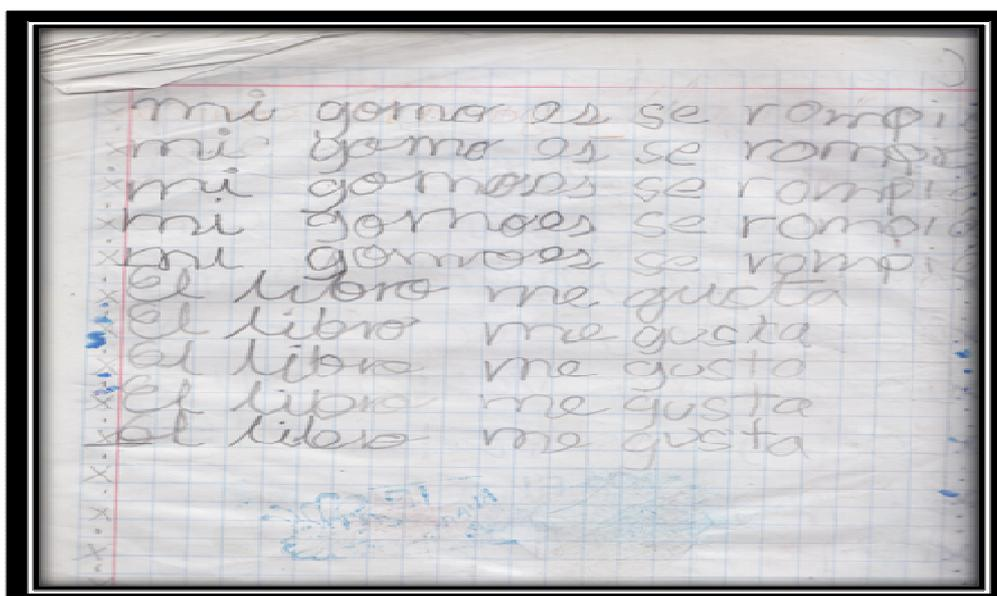 mi gomo es se rompio
mi gomo es se rompio
mi gomoses se rompio
mi gomoes se rompio
mi gomoes se rompio
El libro me gucta
El libro me gusta
el libro me gusta
El libro me gusta
el libro me gusta